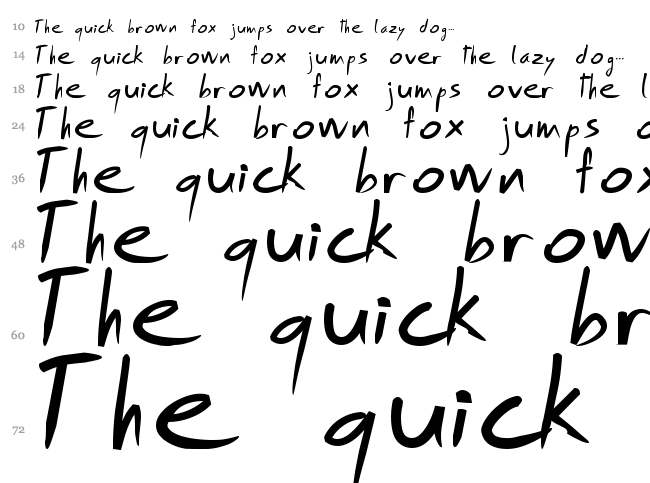 10 The quick brown fox jumps over the lazy dog...
14 The quick brown fox jumps over the lazy dog...
18 The quick brown fox jumps over the l
24 The quick brown fox jumps o
36 The quick brown fox
48 The quick brow
60 The quick br
72 The quick